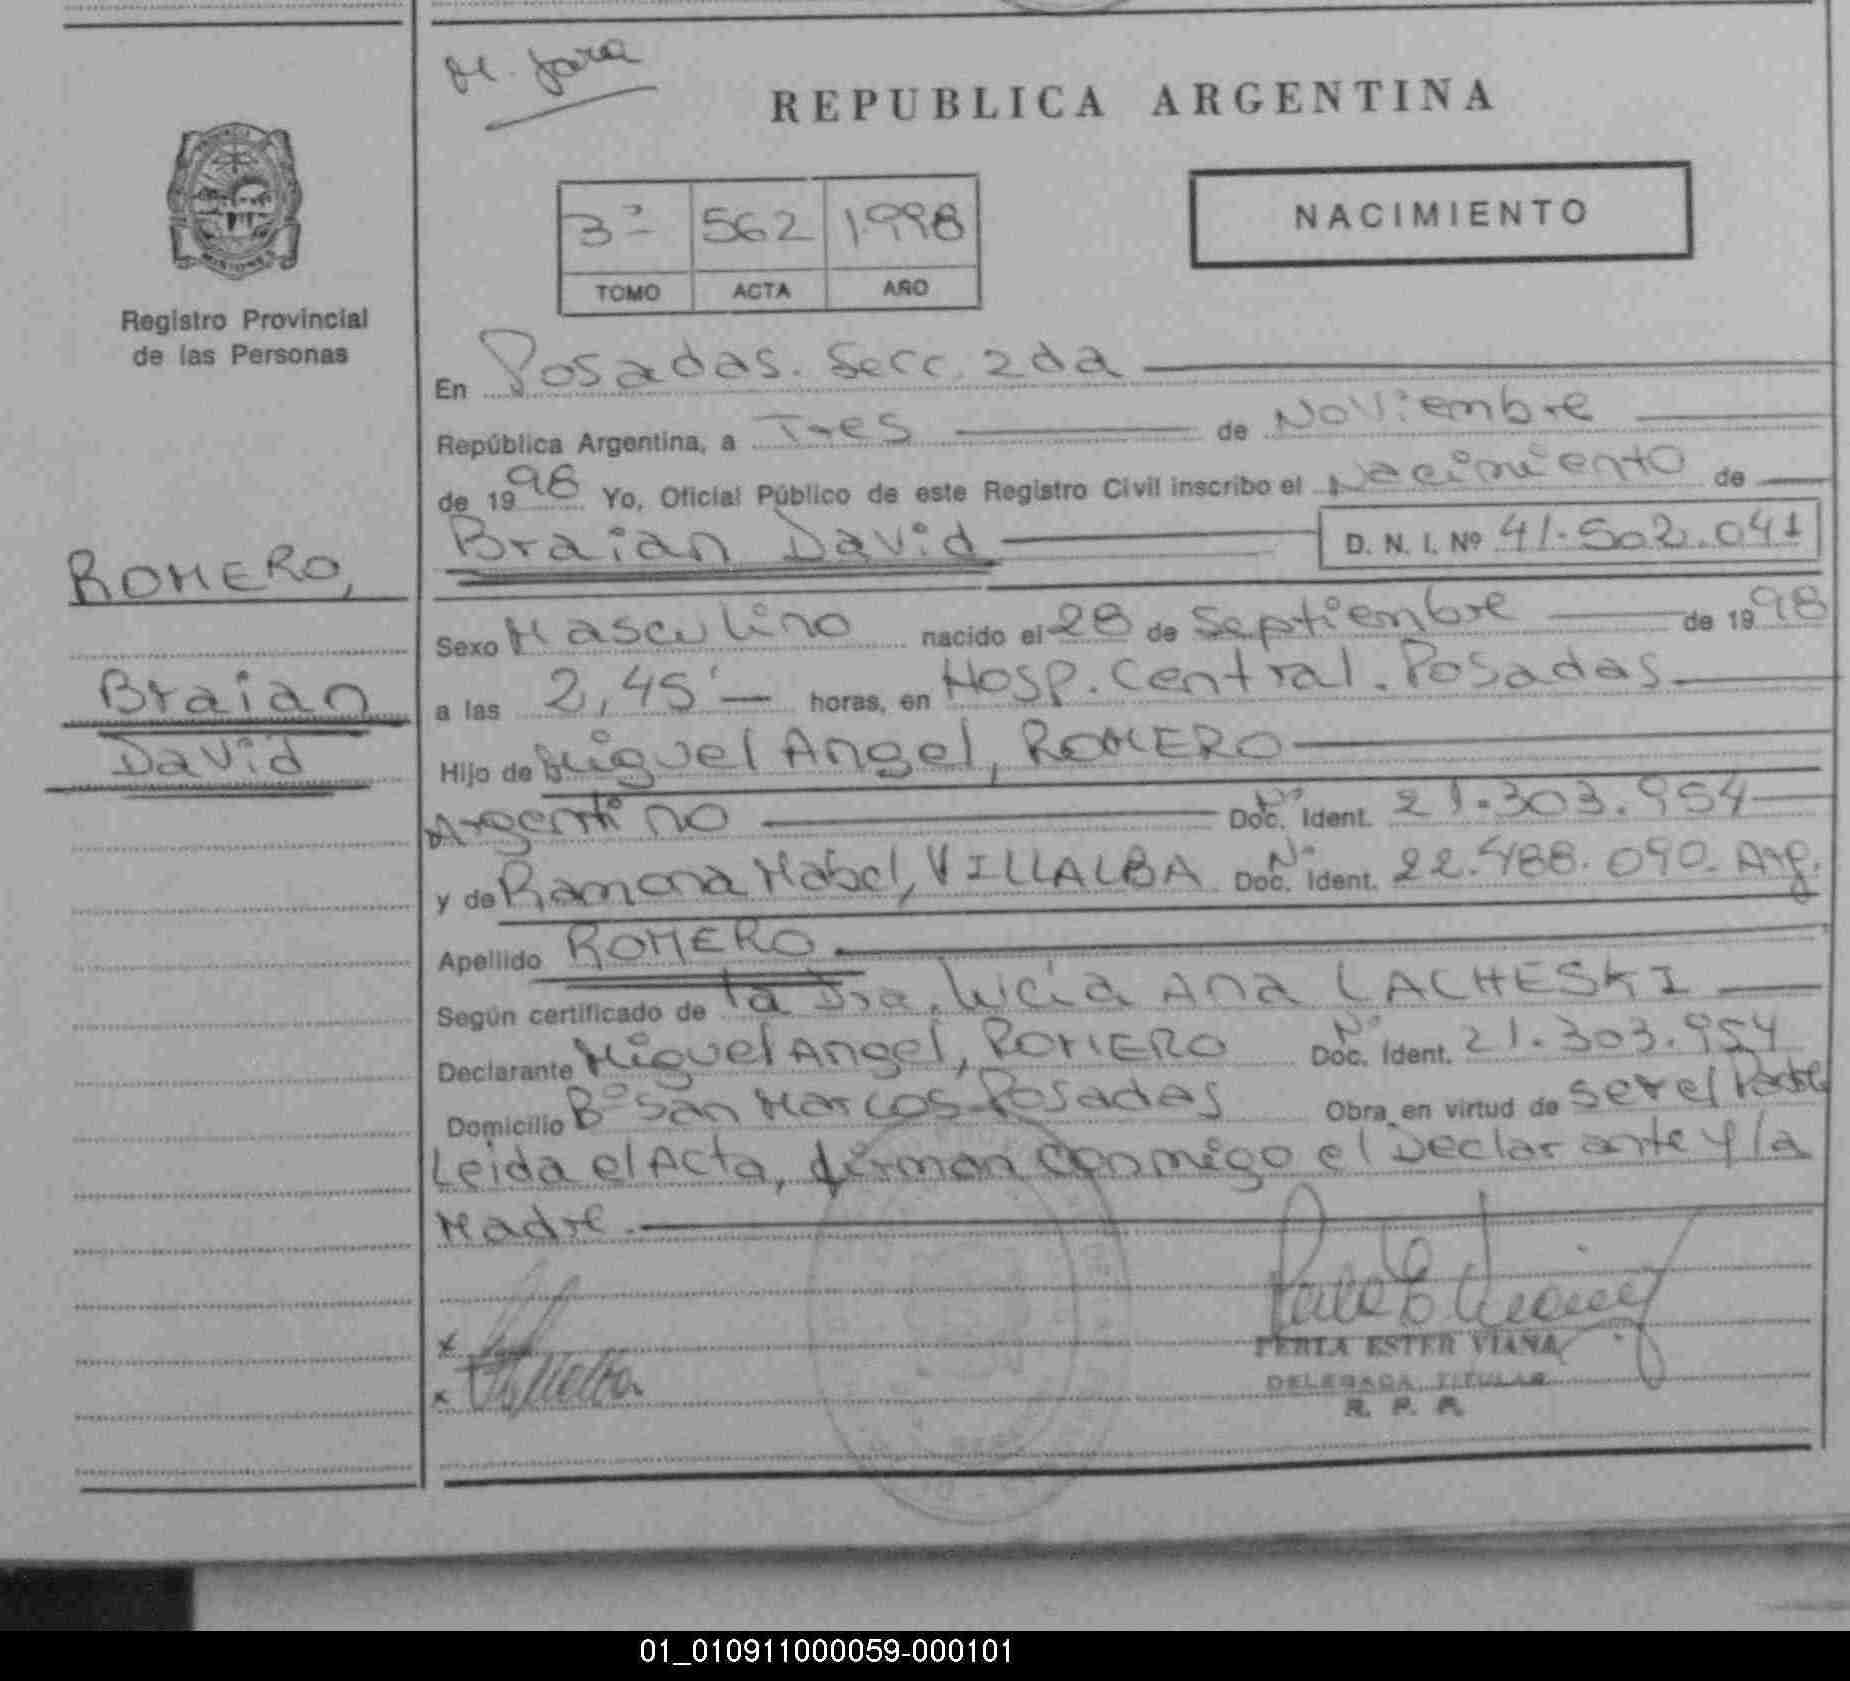 H. Jara
REPUBLICA ARGENTINA
MISIONES
Registro Provincial
de las Personas
3º 562 1998
TOMO ACTA AÑO
NACIMIENTO
En Posadas. Secc. 2da
República Argentina, a Tres de Noviembre
de 1998 Yo, Oficial Público de este Registro Civil inscribo el Nacimiento de
Braian David D. N. I. Nº 41.502.041
ROMERO,
Braian
David
Sexo Masculino nacido el 28 de Septiembre de 1998
a las 2,45' horas, en Hosp. Central. Posadas
Hijo de Miguel Angel, ROMERO
Argentino Nº Doc. Ident. 21.303.954
y de Ramona Mabel, VILLALBA Nº Doc. Ident. 22.488.090. Arg.
Apellido ROMERO
Según certificado de la Dra. Lucia Ana LACHESKI
Declarante Miguel Angel, ROMERO Nº Doc. Ident. 21.303.954
Domicilio Bº San Marcos Posadas Obra en virtud de ser el Padre
Leida el Acta, firman conmigo el Declarante y la
Madre.
PERLA ESTER VIANA
DELEGADA TITULAR
R. P. P.
01_010911000059-000101